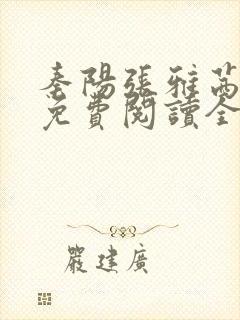 秦陽張雅茜
免費閱讀全
嚴建廣